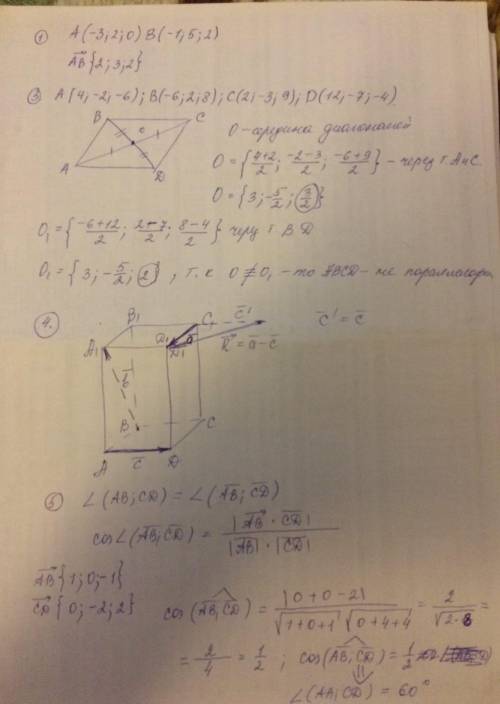 ① A(-3;2;0) B(-1;5;2)
AB{2;3;2}
③ A(4,-2,-6); B(-6;2;8); C(2;-3;9); D(12,-7,-4)
B C
O
A D
O - середина диагоналей
O = {4+2/2; -2-3/2; -6+9/2} - через т. A и C
O = {3; -5/2; 3/2}
O₁ = {-6+12/2; 2-7/2; 8-4/2} через т. B D
O₁ = {3; -5/2; 2}, т.к. O ≠ O₁ - то ABCD - не параллелогр
④.
B₁ C₁ c̄'
A₁ D₁ ā
R̄ = ā - c̄
c̄' = c̄
b̄
B C
A c̄ D
⑤ ∠(AB;CD) = ∠(AB;CD)
cos∠(AB;CD) = |AB · CD| / |AB| · |CD|
AB{1;0;-1}
CD{0;-2;2}
cos(AB;CD) = |0+0-2| / √1+0+1 √0+4+4 = 2/√2·8 =
= 2/4 = 1/2; cos(AB;CD) = 1/2
⇓
∠(AB;CD) = 60°